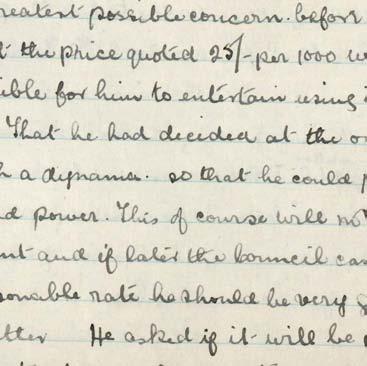 reatest possible concern. before
t the price quoted 25/- per 1000
ible for him to entertain using
That he had decided at the
h a dynamo. so that he could
nd power. This of course will not
nt and if later the Council can
sonable rate he should be very
tter He asked if it will be